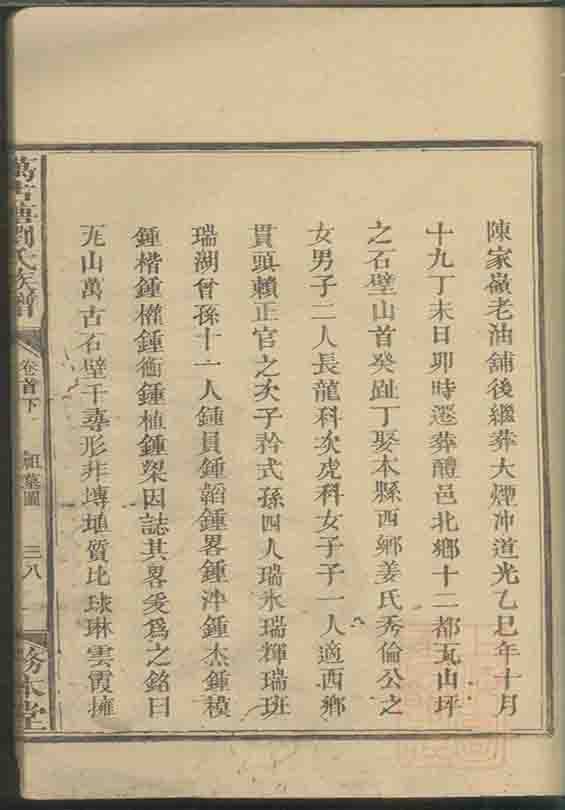 陳家嶺老油舖後繼葬大煙冲道光乙巳年十月
十九丁未日卯時遷葬醴邑北鄉十二都瓦山坪
之石壁山首癸趾丁娶本縣西鄉姜氏秀倫公之
女男子二人長龍科次虎科女子子一人適西鄉
貫頭賴正官之次子矜式孫四人瑞氷瑞輝瑞班
瑞湖曾孫十一人鍾員鍾韜鍾畧鍾沖鍾杰鍾模
鍾楷鍾權鍾衡鍾植鍾榮因誌其畧爰爲之銘曰
瓦山萬古石壁千尋形非塼埴質比球琳雲霞擁
萬古塘劉氏族譜
卷首下
祖墓圖
三八
務本堂